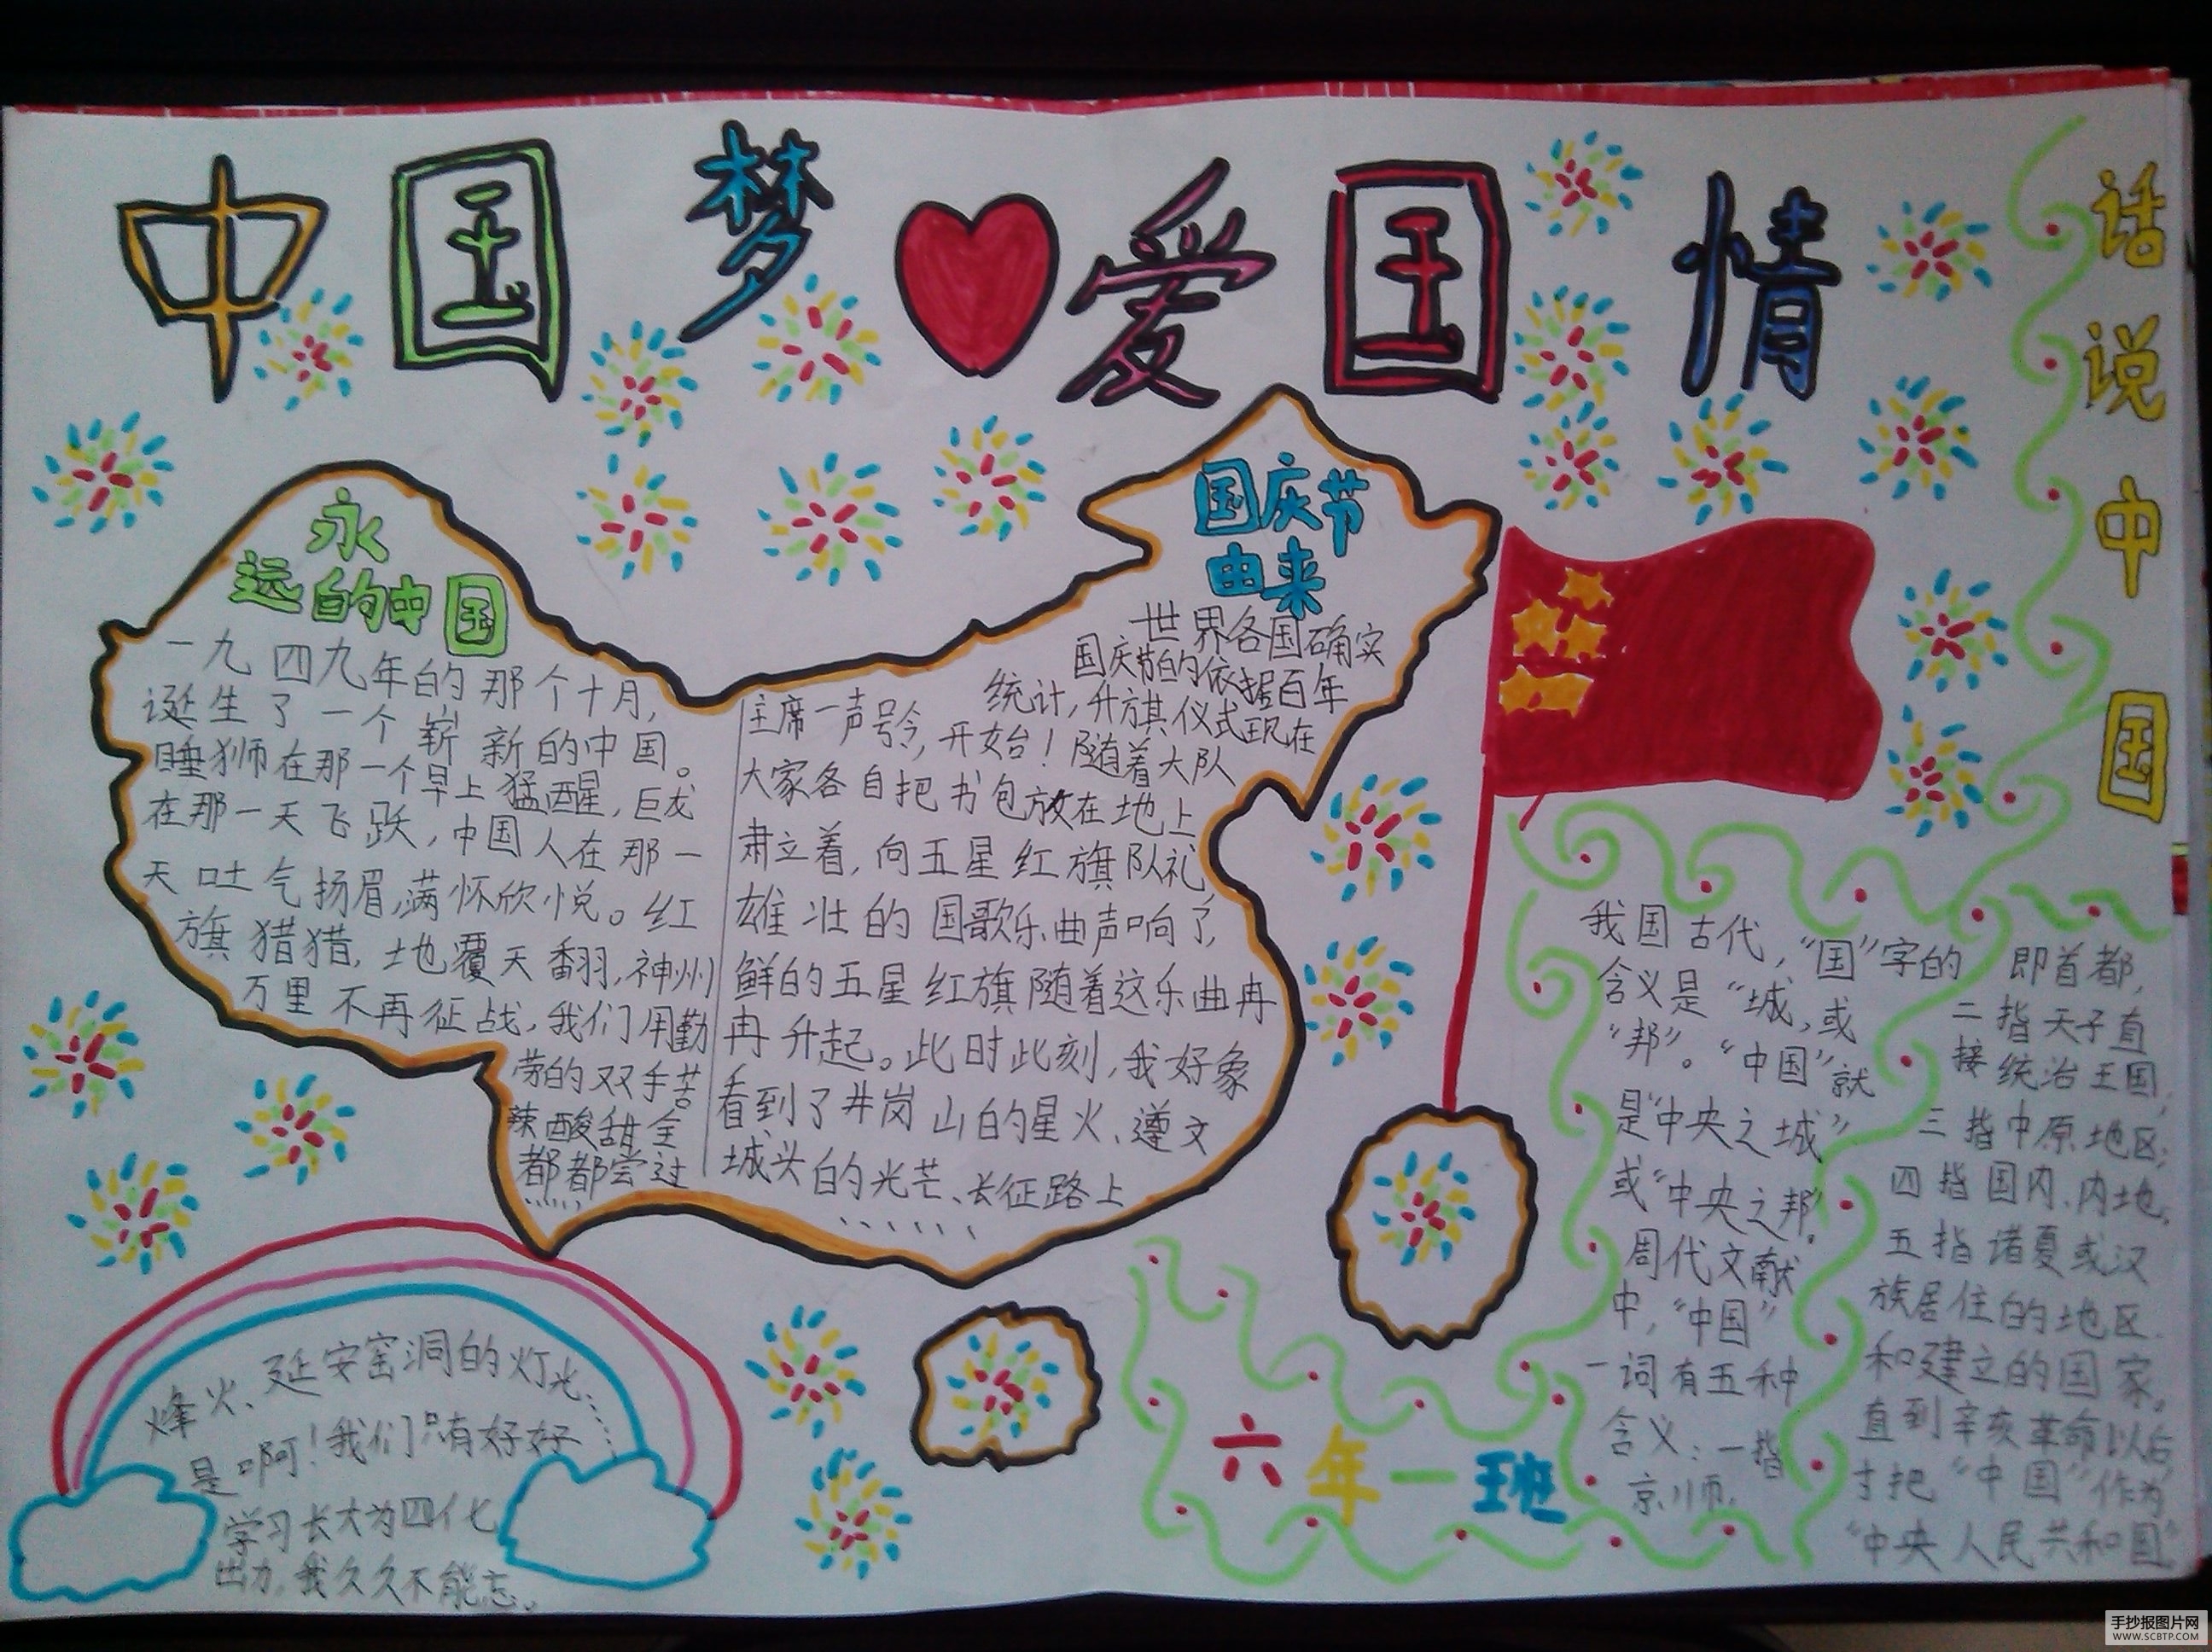 中国梦爱国情
永
远的中国
一九四九年的那个十月,
诞生了一个崭新的中国。
睡狮在那一个早上猛醒,巨龙
在那一天飞跃,中国人在那一
天吐气扬眉,满怀欣悦。红
旗猎猎,地覆天翻,神州
万里不再征战,我们用勤
劳的双手苦
辣酸甜全
都都尝过
……
国庆节
由来
世界各国确实
国庆节的依据百年
统计,升旗仪式现在
主席一声号令,开始!随着大队
大家各自把书包放在地上
肃立着,向五星红旗队礼
雄壮的国歌乐曲声响了,
鲜的五星红旗随着这乐曲冉
冉升起。此时此刻,我好象
看到了井岗山的星火、遵文
城头的光芒、长征路上
……
烽火、延安窑洞的灯光……
是啊!我们只有好好
学习长大为四化
出力。我久久不能忘。
话说中国
我国古代,“国”字的
含义是“城,或
“邦”。“中国”就
是“中央之城”
或“中央之邦”。
周代文献
中,“中国”
一词有五种
含义:一指
京师,
即首都,
二指天子直
接统治王国;
三指中原地区;
四指国内、内地,
五指诸夏或汉
族居住的地区
和建立的国家。
直到辛亥革命以后
才把“中国”作为
“中央人民共和国”
六年一班
手抄报图片网
WWW.SCBTP.COM